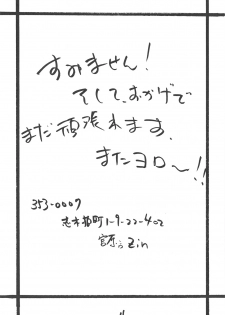 すみません!
そして、おかげで
まだ頑張れます。
またヨロ〜!!
353-0007
志木市柏町1-9-22-402
Zin